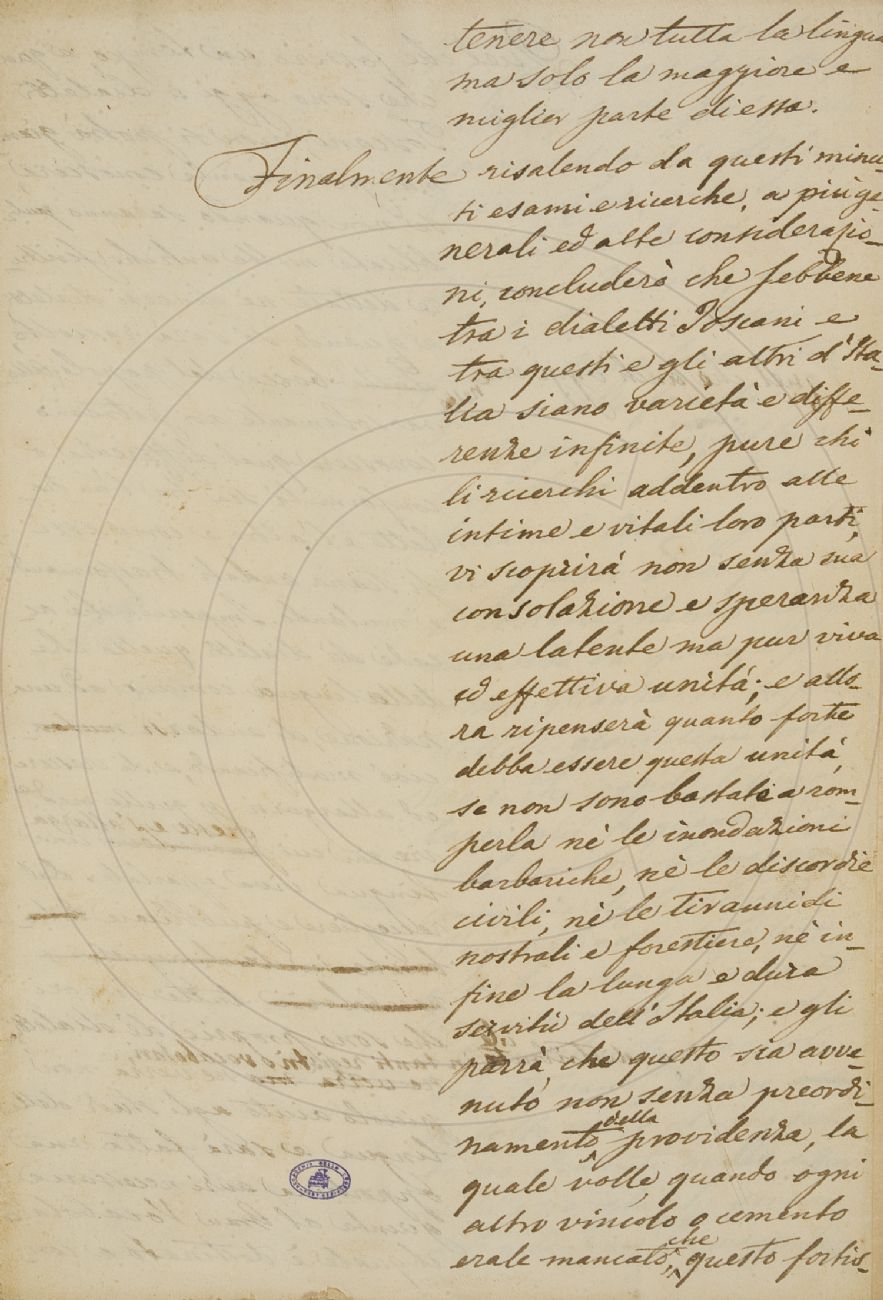 tenere non tutta la lingua
ma solo la maggiore e
miglior parte di essa.
Finalmente risalendo da questi minu-
ti esami e ricerche, a più ge-
nerali ed alte considerazio-
ni, concluderò che sebbene
tra i dialetti Toscani e
tra questi e gli altri d'Ita-
lia siano varietà e diffe-
renze infinite, pure chi
li ricerchi addentro alle
intime e vitali loro parti,
vi scoprirà non senza sua
consolazione e speranza
una latente ma pur viva
ed effettiva unità; e allo-
ra ripenserà quanto forte
debba essere questa unità,
se non sono bastate a rom-
perla nè le inondazioni
barbariche, nè le discordie
civili, nè le tirannidi
nostrali e forestiere, nè in-
fine la lunga e dura
servitù dell'Italia; e gli
parrà, che questo sia avve-
nuto non senza preordi-
namento della providenza, la
quale volle, quando ogni
altro vincolo o cemento
erale mancato, che questo fortis-